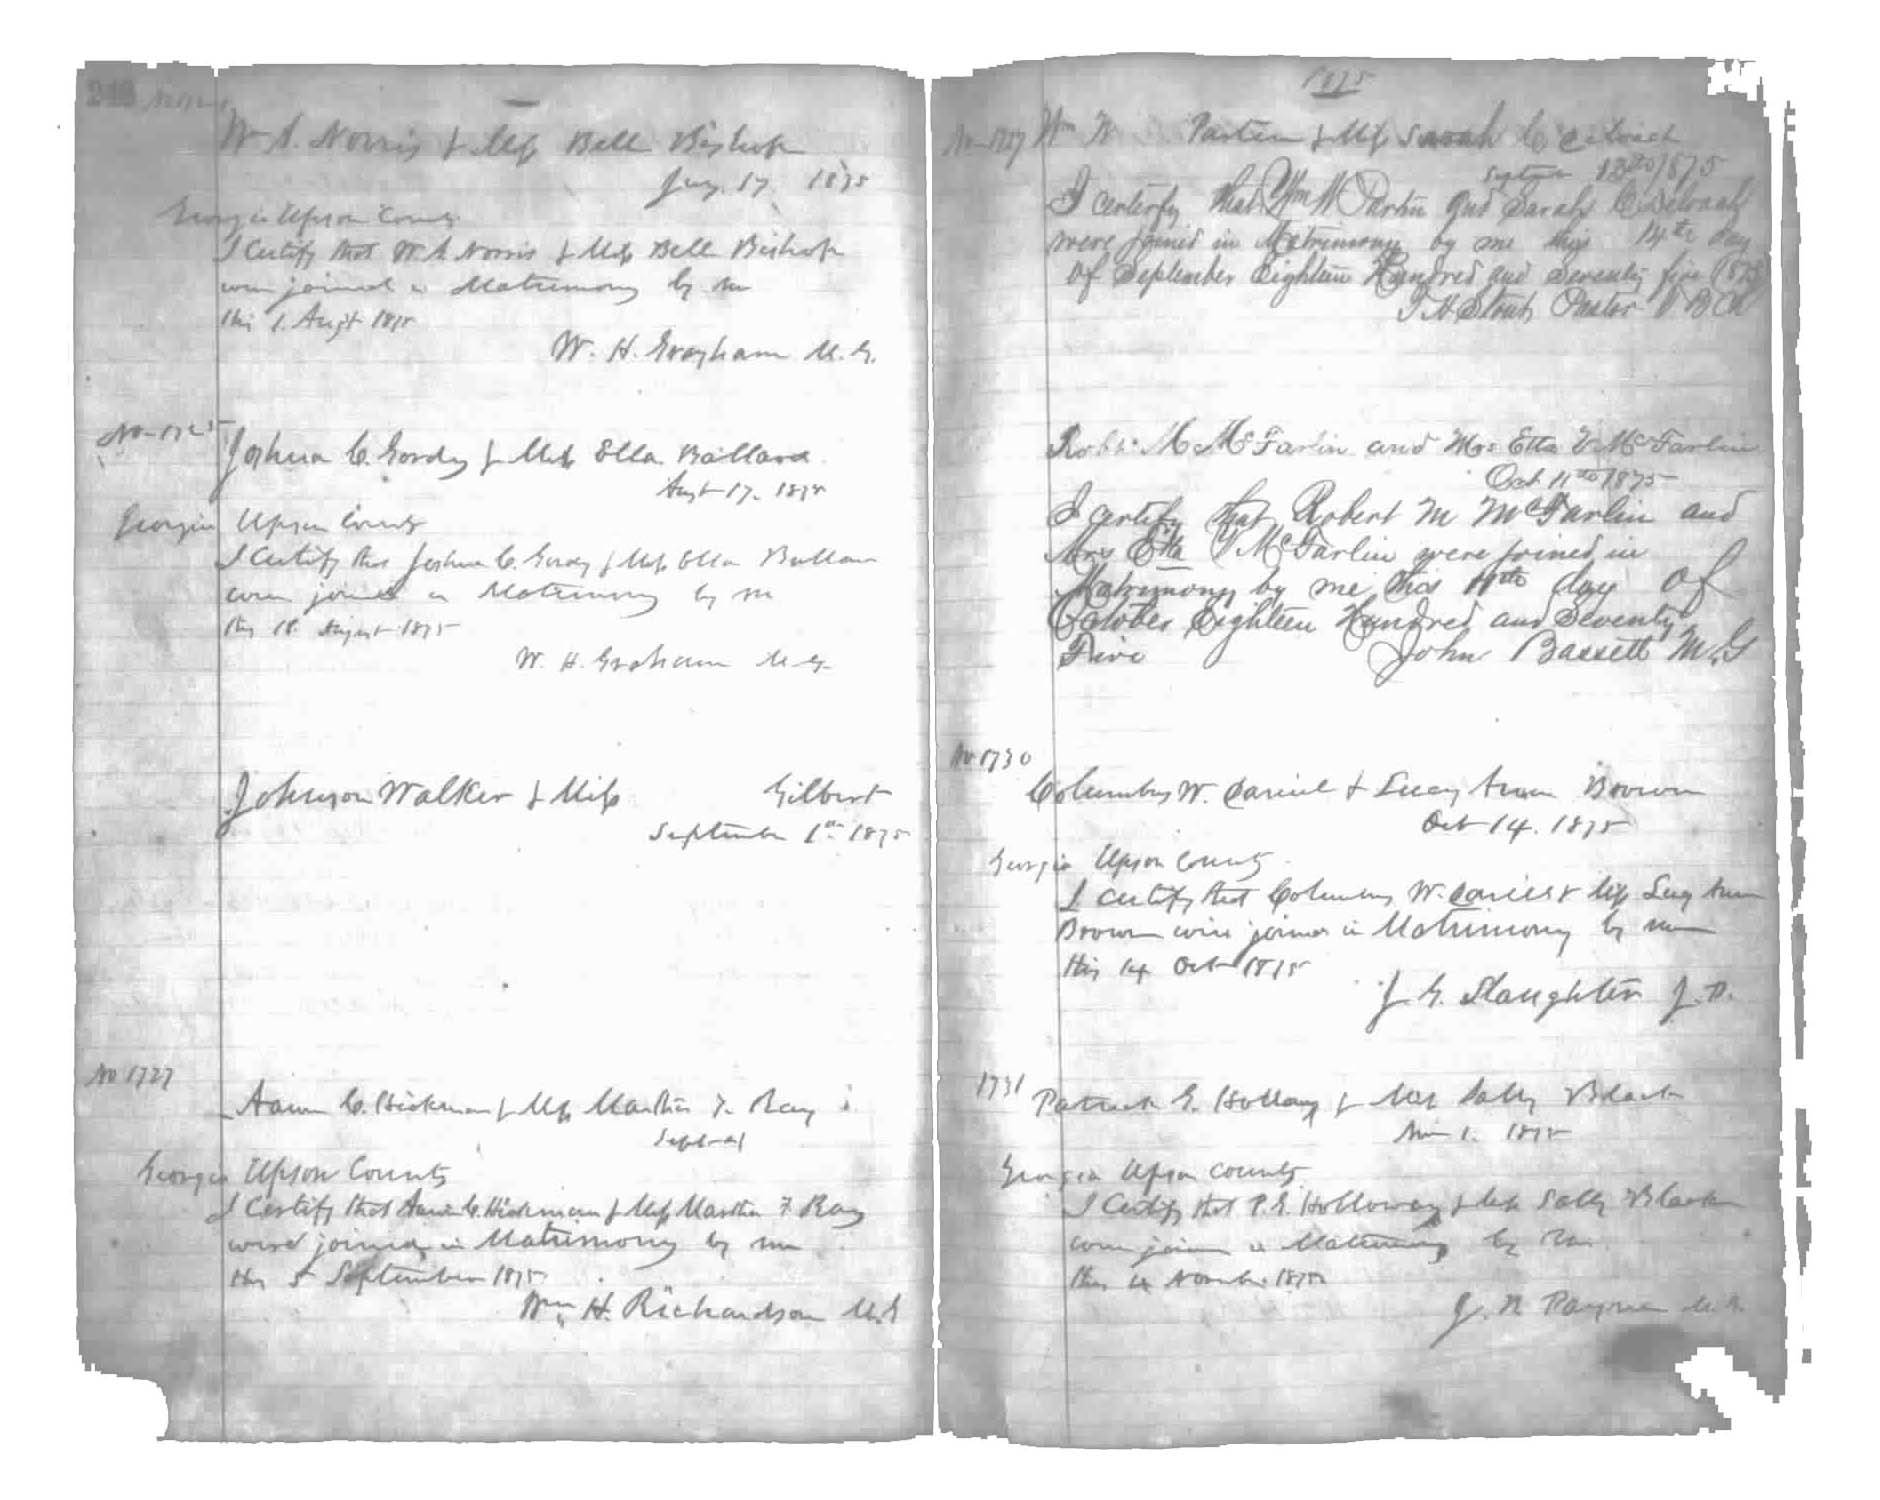 W. A. Norris & Miss Bell Bishop
July 17 1875
Georgia Upson County
I Certify that W A Norris & Miss Bell Bishop
were joined in Matrimony by me
this 1. Augst 1875
W. H. Graham M. G.
No-1725
Joshua C. Gordy & Miss Ella Ballard
Augst 17. 1875
Georgia Upson County
I Certify that Joshua C. Gordy & Miss Ella Ballard
were joined in Matrimony by me
this 18. August 1875
W. H. Graham M. G.
Johnson Walker & Miss Gilbert
September 1st 1875
No 1727
Aaron C. Hickman & Miss Martha F. Ray
Georgia Upson County
I Certify that Aaron C. Hickman & Miss Martha F Ray
were joined in Matrimony by me
this 5 September 1875
Wm H. Richardson M. G
1875
Wm W & Miss Sarah C
Septem 13th 1875
I certerfy that Wm W Partin and Sarah C Deloach
were joined in Matrimony by me this 14th day
of September Eighteen Hundred and Seventy five 1875
Pastor
Robt M McFarlin and Mrs Etta V McFarlin
Oct 11th 1875
I certify that Robert M McFarlin and
Mrs Etta V McFarlin were joined in
Matrimony by me this 11th day of
October Eighteen Hundred and Seventy
Five John Bassett M. G
No 1730
Columbus W. Daniel & Lucy Ann Brown
Oct 14. 1875
Georgia Upson County
I certify that Columbus W. Daniel & Miss Lucy Ann
Brown were joined in Matrimony by me
this 14 Oct 1875
J. G. Slaughter J. P.
1731
Patrick G. Holloway & Miss Sally Black
1. 1875
Georgia Upson County
I Certify that P. G. Holloway & Miss Sally Black
were joined in Matrimony by me
this 4 November 1875